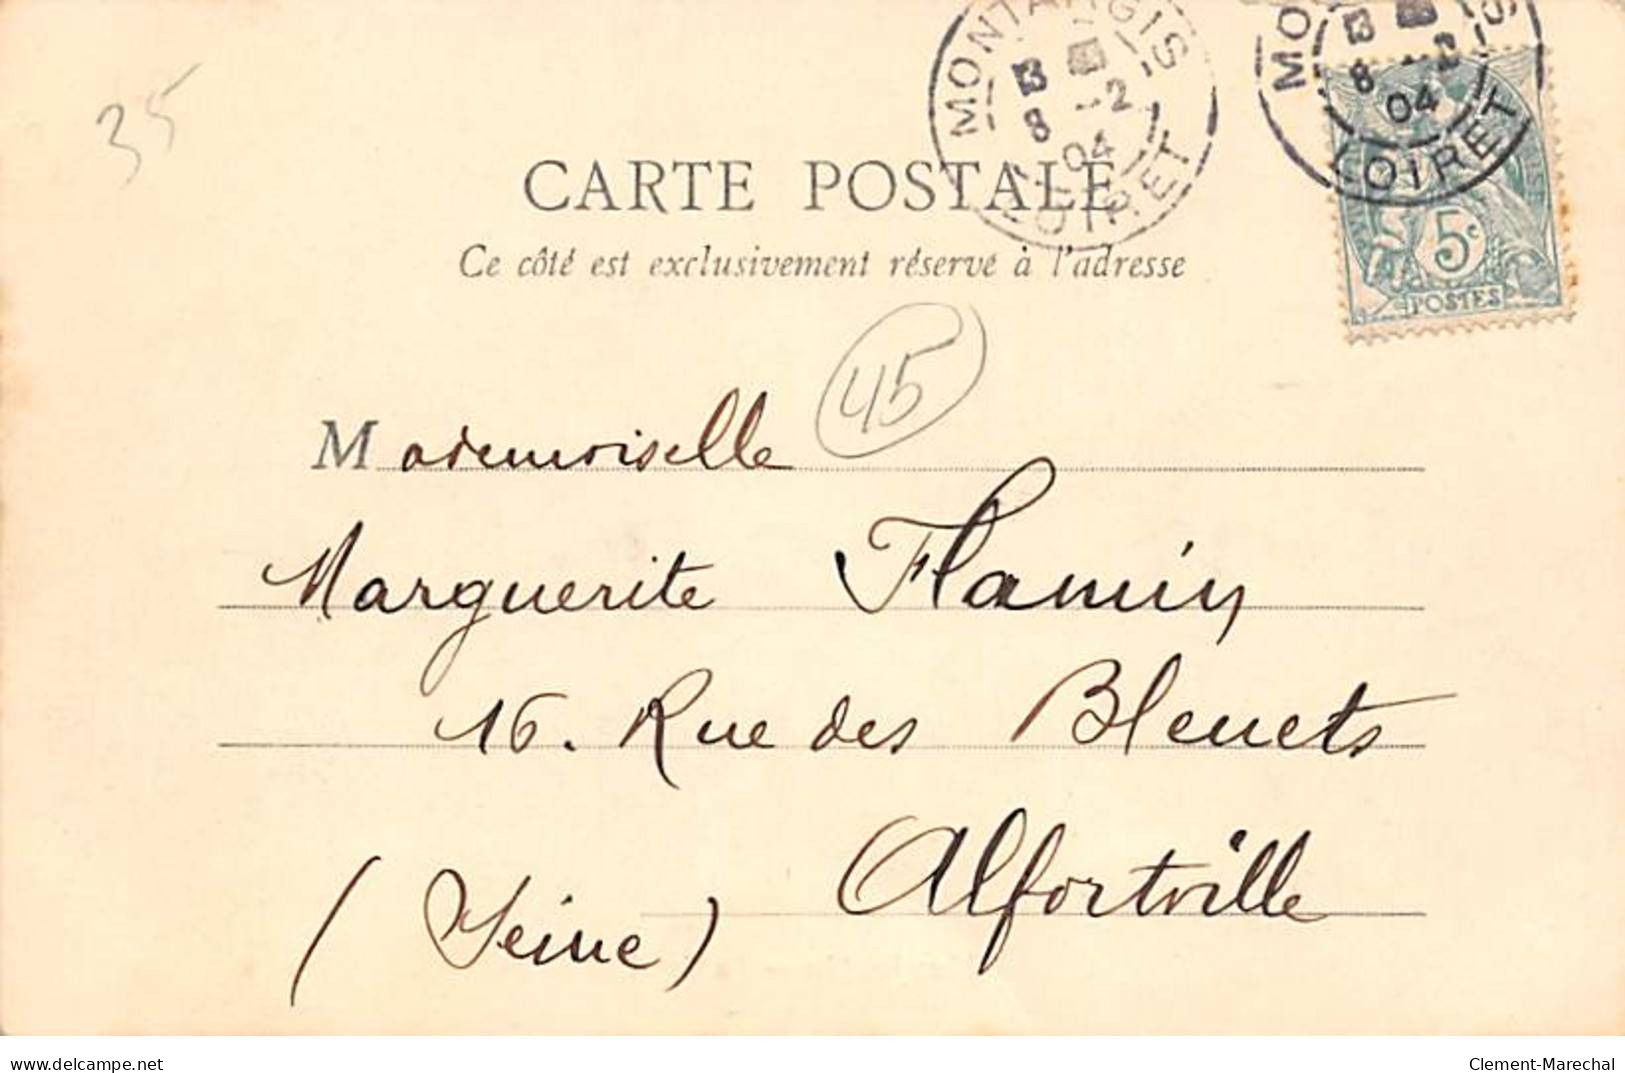 35
MONTARGIS
8 -2
04
LOIRET
8 -2
04
LOIRET
5c
POSTES
CARTE POSTALE
Ce côté est exclusivement réservé à l'adresse
45
Mademoiselle
Marguerite Flamin
16. Rue des Bleuets
Alfortville
(Seine)
delcampe.net
Clement-Marechal